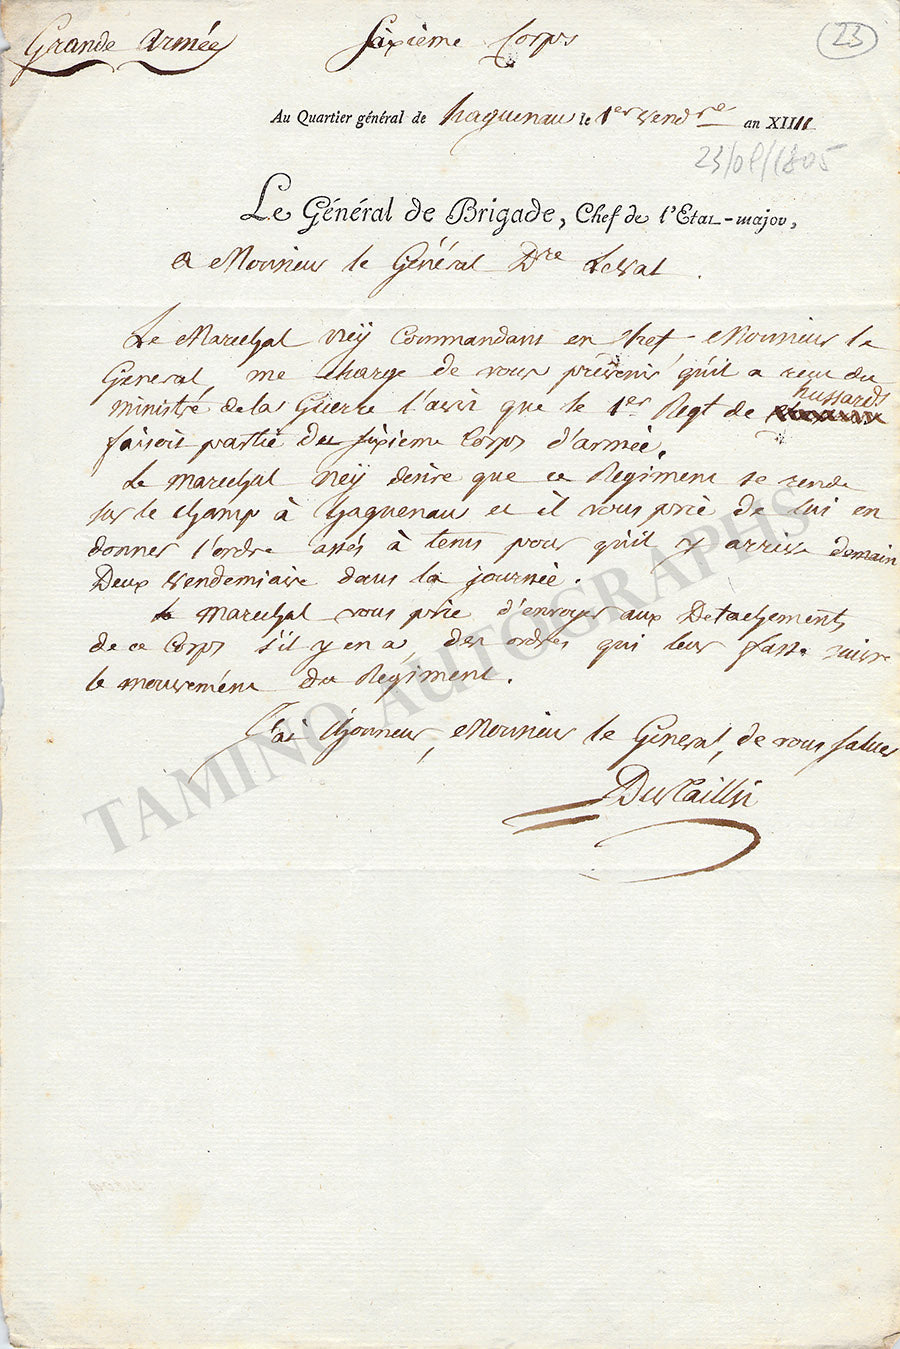 Grande Armée
Sixième Corps
23
Au Quartier général de haguenau le 1er vendre an XIIII
23/09/1805
Le Général de Brigade, Chef de l'Etat-major,
a Monsieur le Général Dre Leval.
Le Marechal Neÿ Commandant en Chef Monsieur le
General, me charge de vous prévenir qu'il a reçu du
ministre de la Guerre l'avis que le 1er Regt de hussards
faisoit partie du sixième Corps d'armée.
Le marechal Neÿ desire que ce Regiment se rende
sur le champ à haguenau et il vous prie de lui en
donner l'ordre assés à tems pour qu'il y arrive demain
Deux vendemiaire dans la journée.
Le marechal vous prie d'envoyer aux Detachements
de ce Corps s'il y en a, des ordres qui leur fasse suivre
le mouvement du Regiment.
J'ai l'honneur, Monsieur le Général, de vous saluer
DuTaillis
TAMINO AUTOGRAPHS